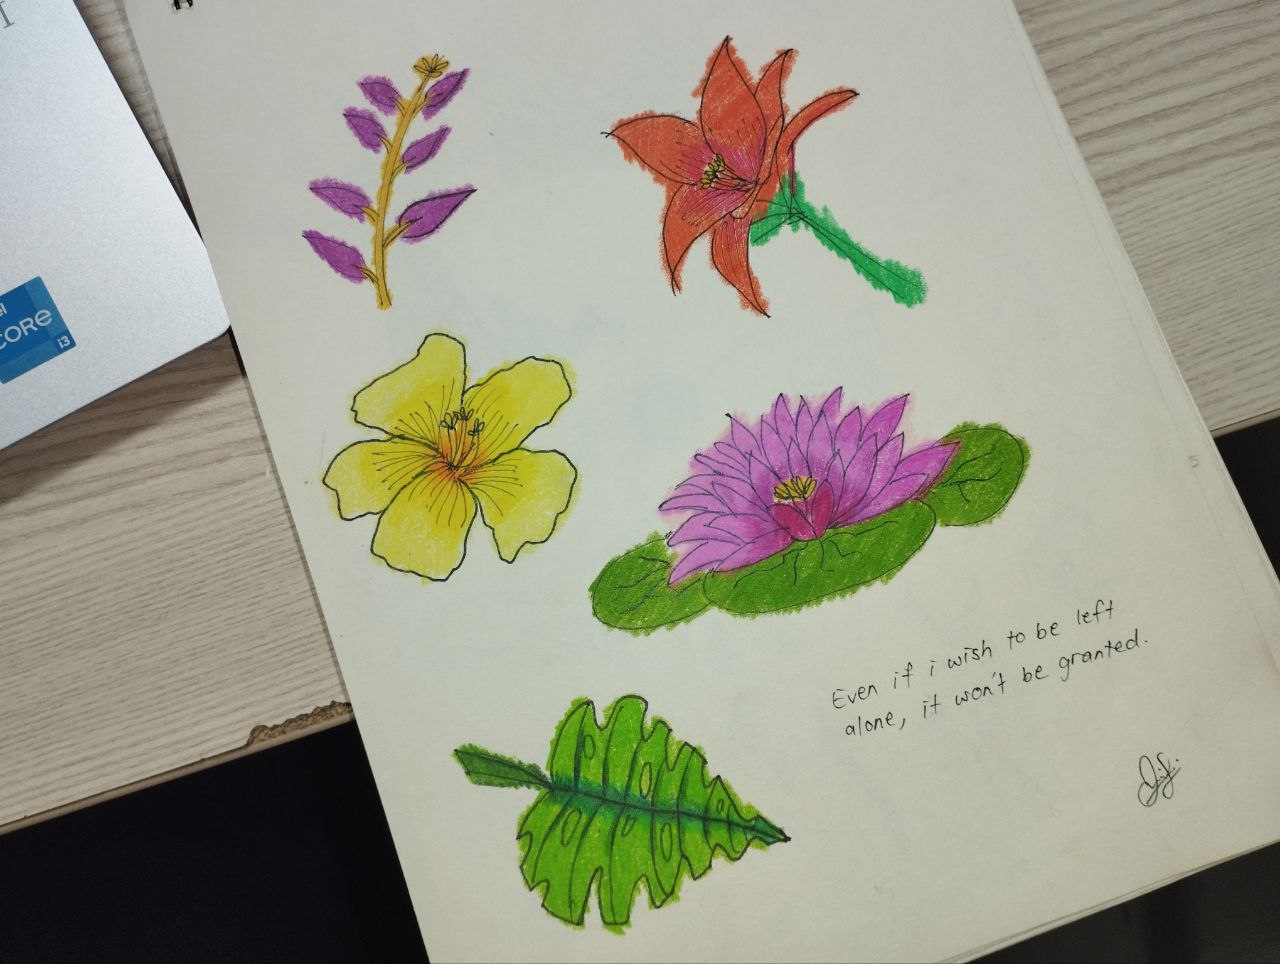 CORE
i3
Even if i wish to be left
alone, it won't be granted.